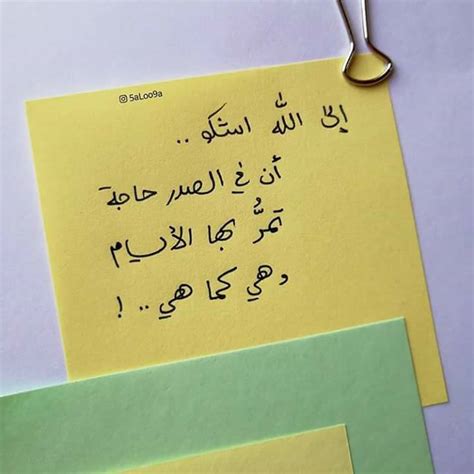 5aLoo9a
إلى الله اشكو ..
أن في الصدر حاجة
تمرُّ بها الأيام
وهي كما هي .. !